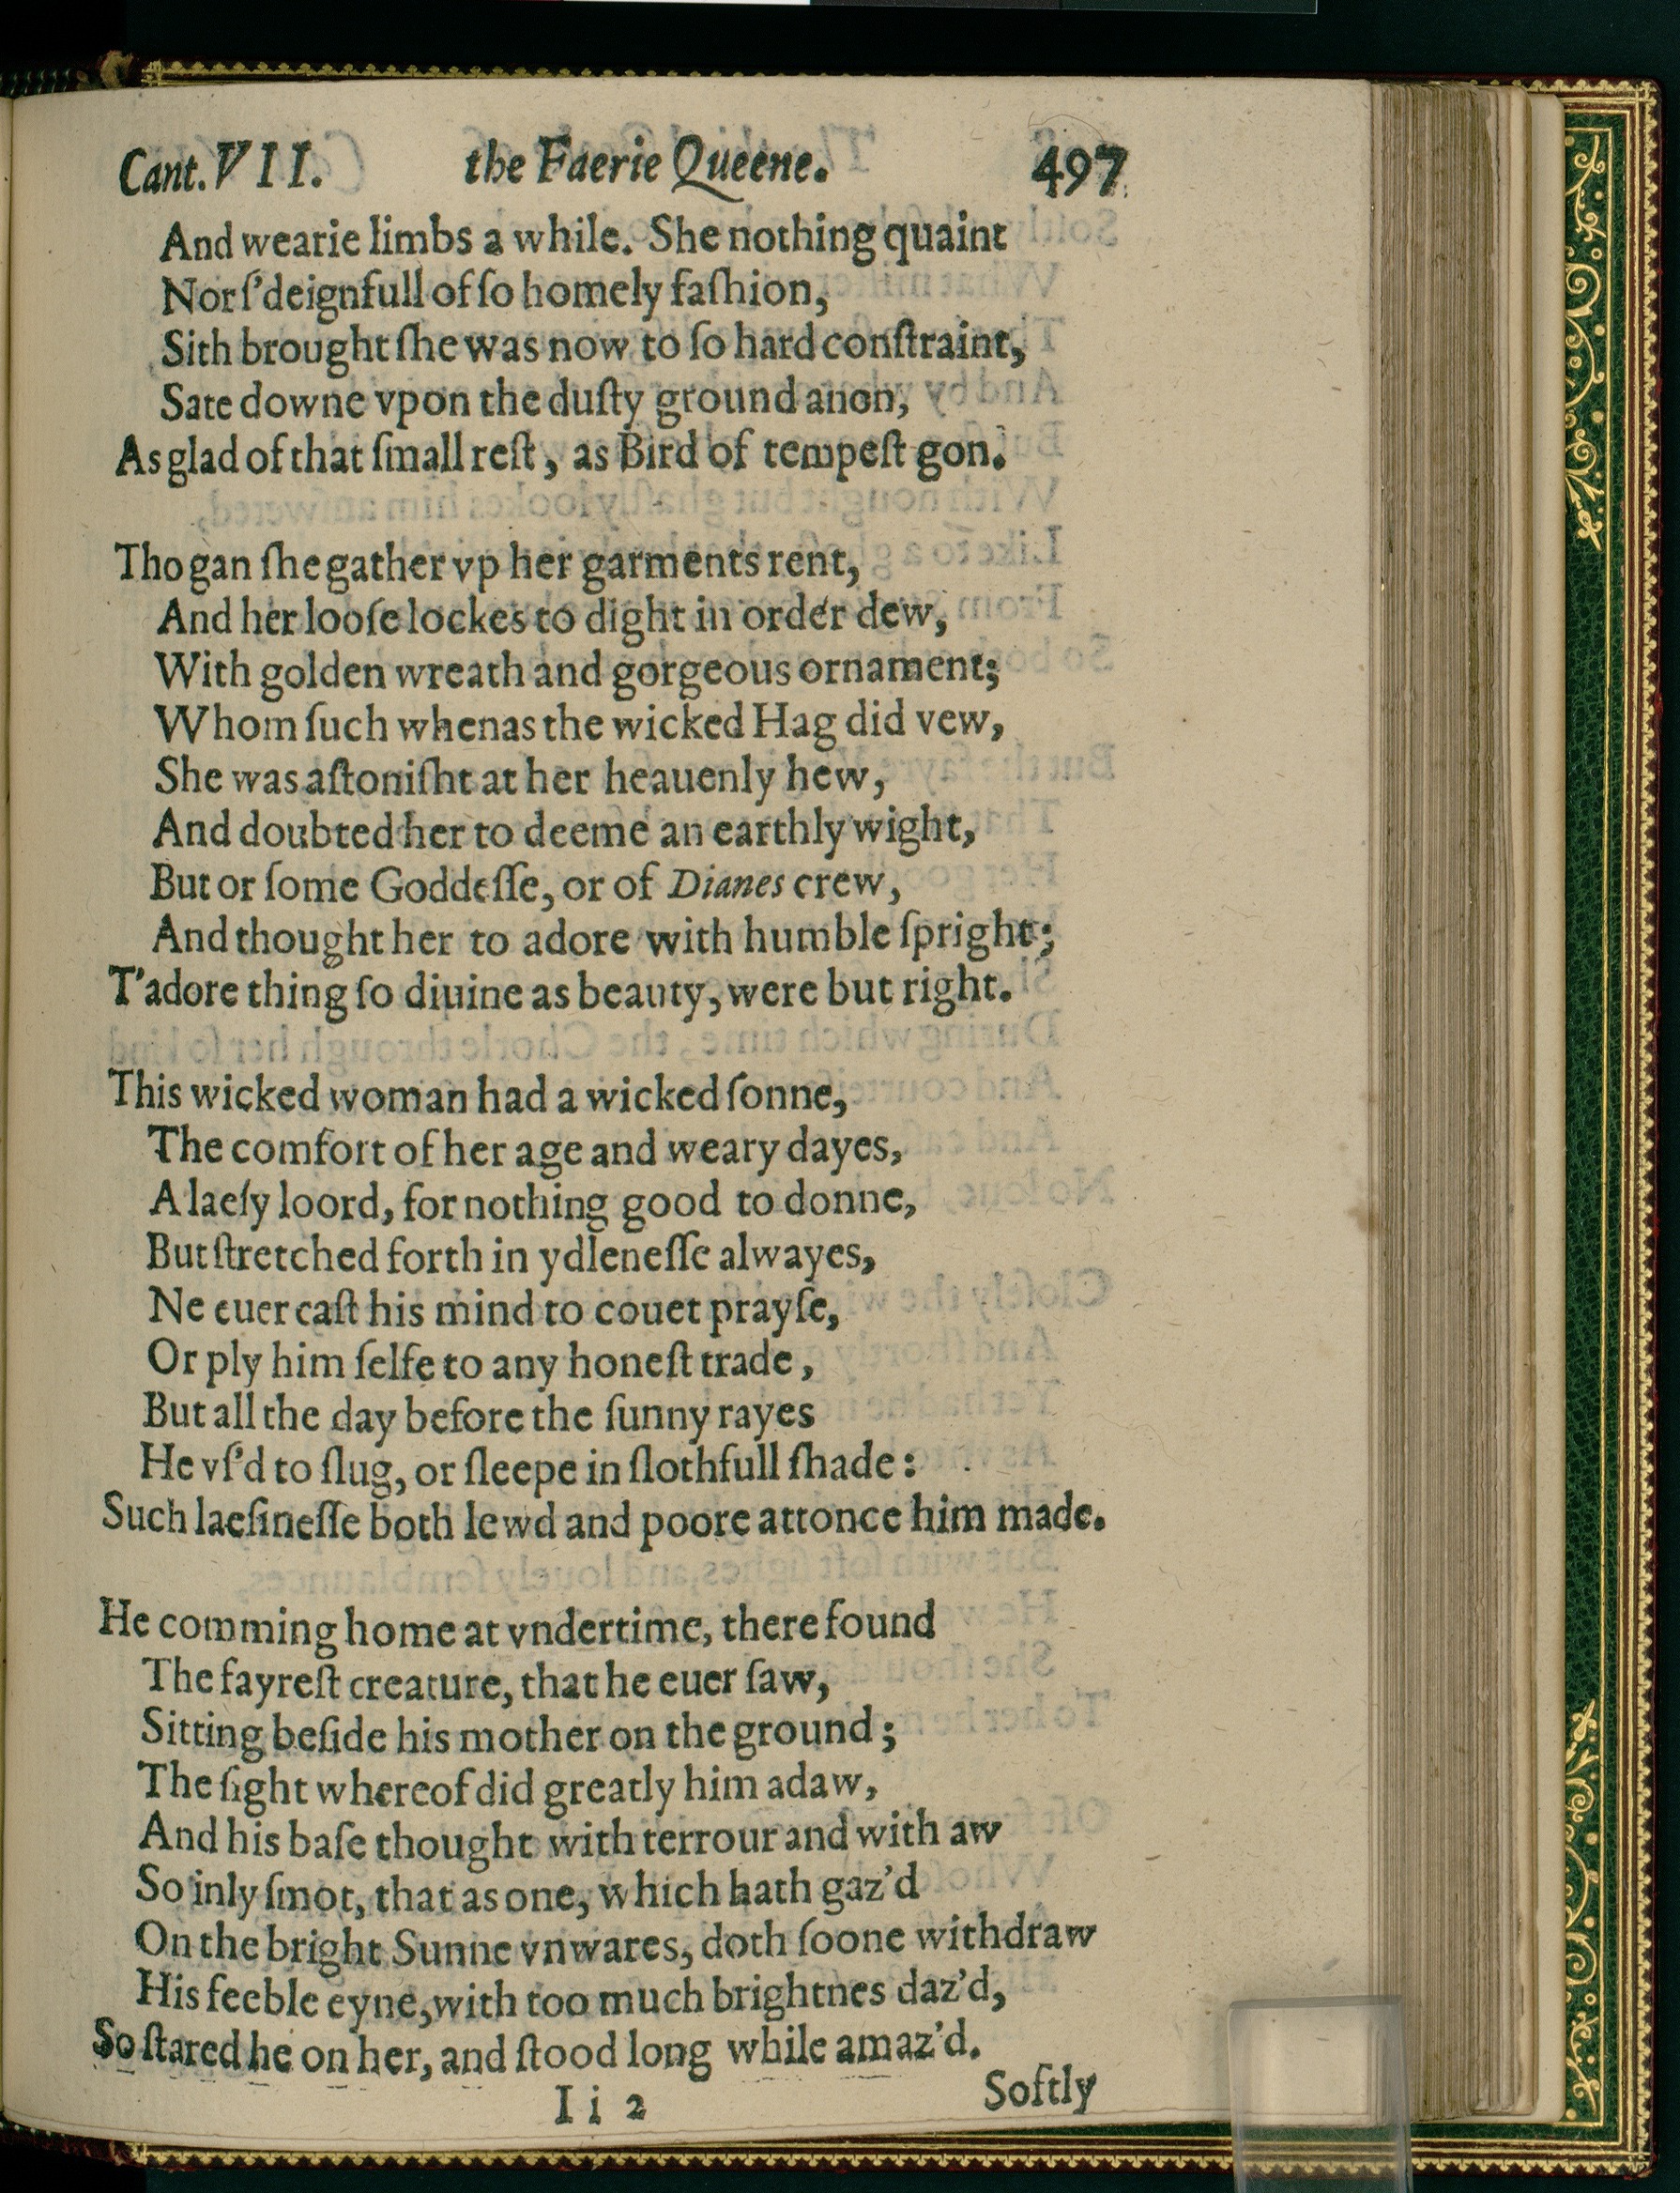 Cant. VII. the Faerie Queene. 497
And wearie limbs a while. She nothing quaint
Nor ſ'deignfull of ſo homely faſhion,
Sith brought ſhe was now to ſo hard conſtraint,
Sate downe vpon the duſty ground anon,
As glad of that ſmall reſt, as Bird of tempeſt gon.
Tho gan ſhe gather vp her garments rent,
And her looſe lockes to dight in order dew,
With golden wreath and gorgeous ornament;
Whom ſuch whenas the wicked Hag did vew,
She was aſtoniſht at her heauenly hew,
And doubted her to deeme an earthly wight,
But or ſome Goddeſſe, or of Dianes crew,
And thought her to adore with humble ſpright;
T'adore thing ſo diuine as beauty, were but right.
This wicked woman had a wicked ſonne,
The comfort of her age and weary dayes,
A laeſy loord, for nothing good to donne,
But ſtretched forth in ydleneſſe alwayes,
Ne euer caſt his mind to couet prayſe,
Or ply him ſelfe to any honeſt trade,
But all the day before the ſunny rayes
He vſ'd to ſlug, or ſleepe in ſlothfull ſhade:
Such laeſineſſe both lewd and poore attonce him made.
He comming home at vndertime, there found
The fayreſt creature, that he euer ſaw,
Sitting beſide his mother on the ground;
The ſight whereof did greatly him adaw,
And his baſe thought with terrour and with aw
So inly ſmot, that as one, which hath gaz'd
On the bright Sunne vnwares, doth ſoone withdraw
His feeble eyne, with too much brightnes daz'd,
So ſtared he on her, and ſtood long while amaz'd.
I i 2 Softly